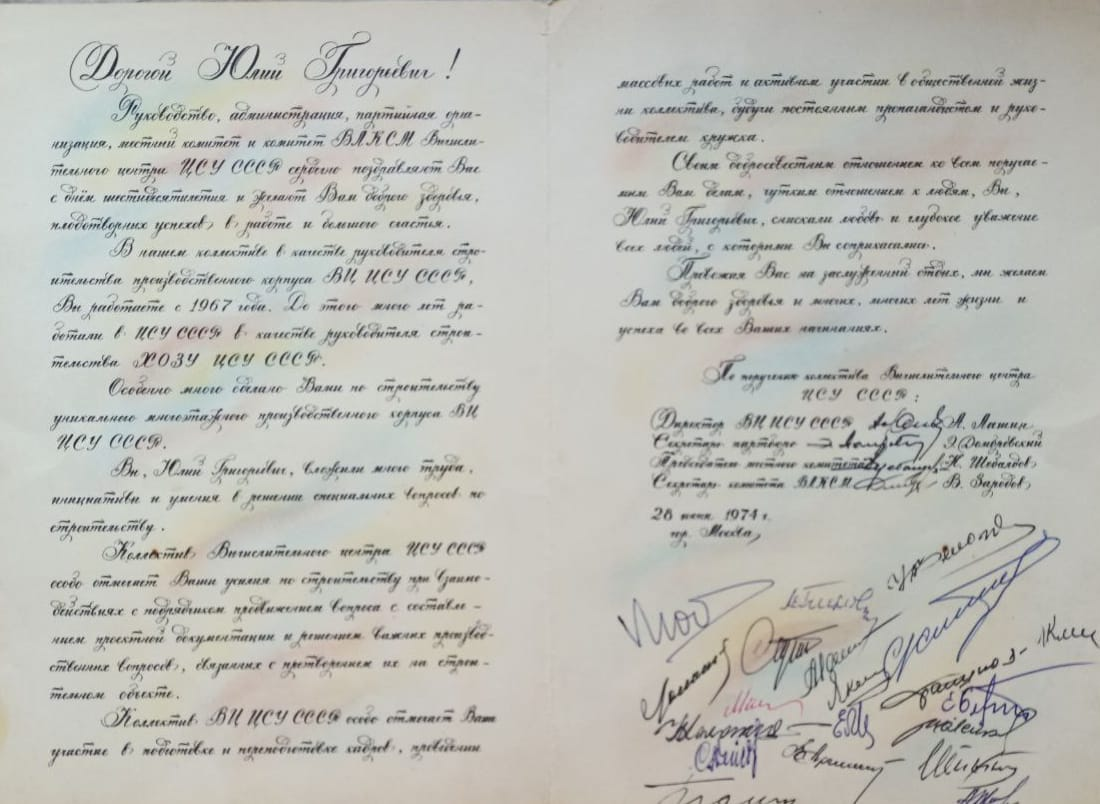 Дорогой Юлий Григорьевич!
Руководство, администрация, партийная орга-
низация, местный комитет и комитет ВЛКСМ Вычисли-
тельного центра ЦСУ СССР сердечно поздравляют Вас
с днём шестидесятилетия и желают Вам доброго здоровья,
плодотворных успехов в работе и большого счастья.
В нашем коллективе в качестве руководителя стро-
ительства производственного корпуса ВЦ ЦСУ СССР,
Вы работаете с 1967 года. До этого много лет ра-
ботали в ЦСУ СССР в качестве руководителя строи-
тельства ХОЗУ ЦСУ СССР.
Особенно много сделано Вами по строительству
уникального многоэтажного производственного корпуса ВЦ
ЦСУ СССР.
Вы, Юлий Григорьевич, вложили много труда,
инициативы и умения в решении специальных вопросов по
строительству.
Коллектив Вычислительного центра ЦСУ СССР
особо отмечает Ваши усилия по строительству при взаимо-
действиях с подрядчиком продвижением вопроса с составле-
нием проектной документации и решением важных производ-
ственных вопросов, связанных с претворением их на строи-
тельном объекте.
Коллектив ВЦ ЦСУ СССР особо отмечает Ваше
участие в подготовке и переподготовке кадров, проведении
массовых работ и активном участии в общественной жиз-
ни коллектива, будучи постоянным пропагандистом и руко-
водителем кружка.
Своим добросовестным отношением ко всем поручае-
мым Вам делам, чутким отношением к людям, Вы,
Юлий Григорьевич, снискали любовь и глубокое уважение
всех людей, с которыми Вы соприкасались.
Провожая Вас на заслуженный отдых, мы желаем
Вам доброго здоровья и многих, многих лет жизни и
успеха во всех Ваших начинаниях.
По поручению коллектива Вычислительного центра
ЦСУ СССР:
Директор ВЦ ЦСУ СССР А. Лашин
Секретарь партбюро Э. Домбровский
Председатель местного комитета Н. Шебалдов
Секретарь комитета ВЛКСМ В. Зародов
28 июня 1974 г.
гор. Москва